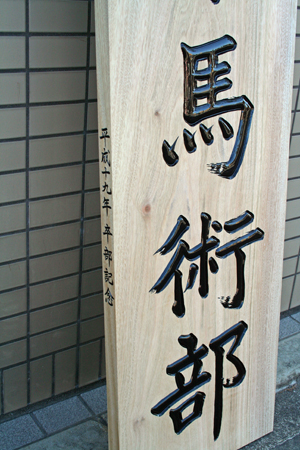 馬術部
平成十九年 卒部記念